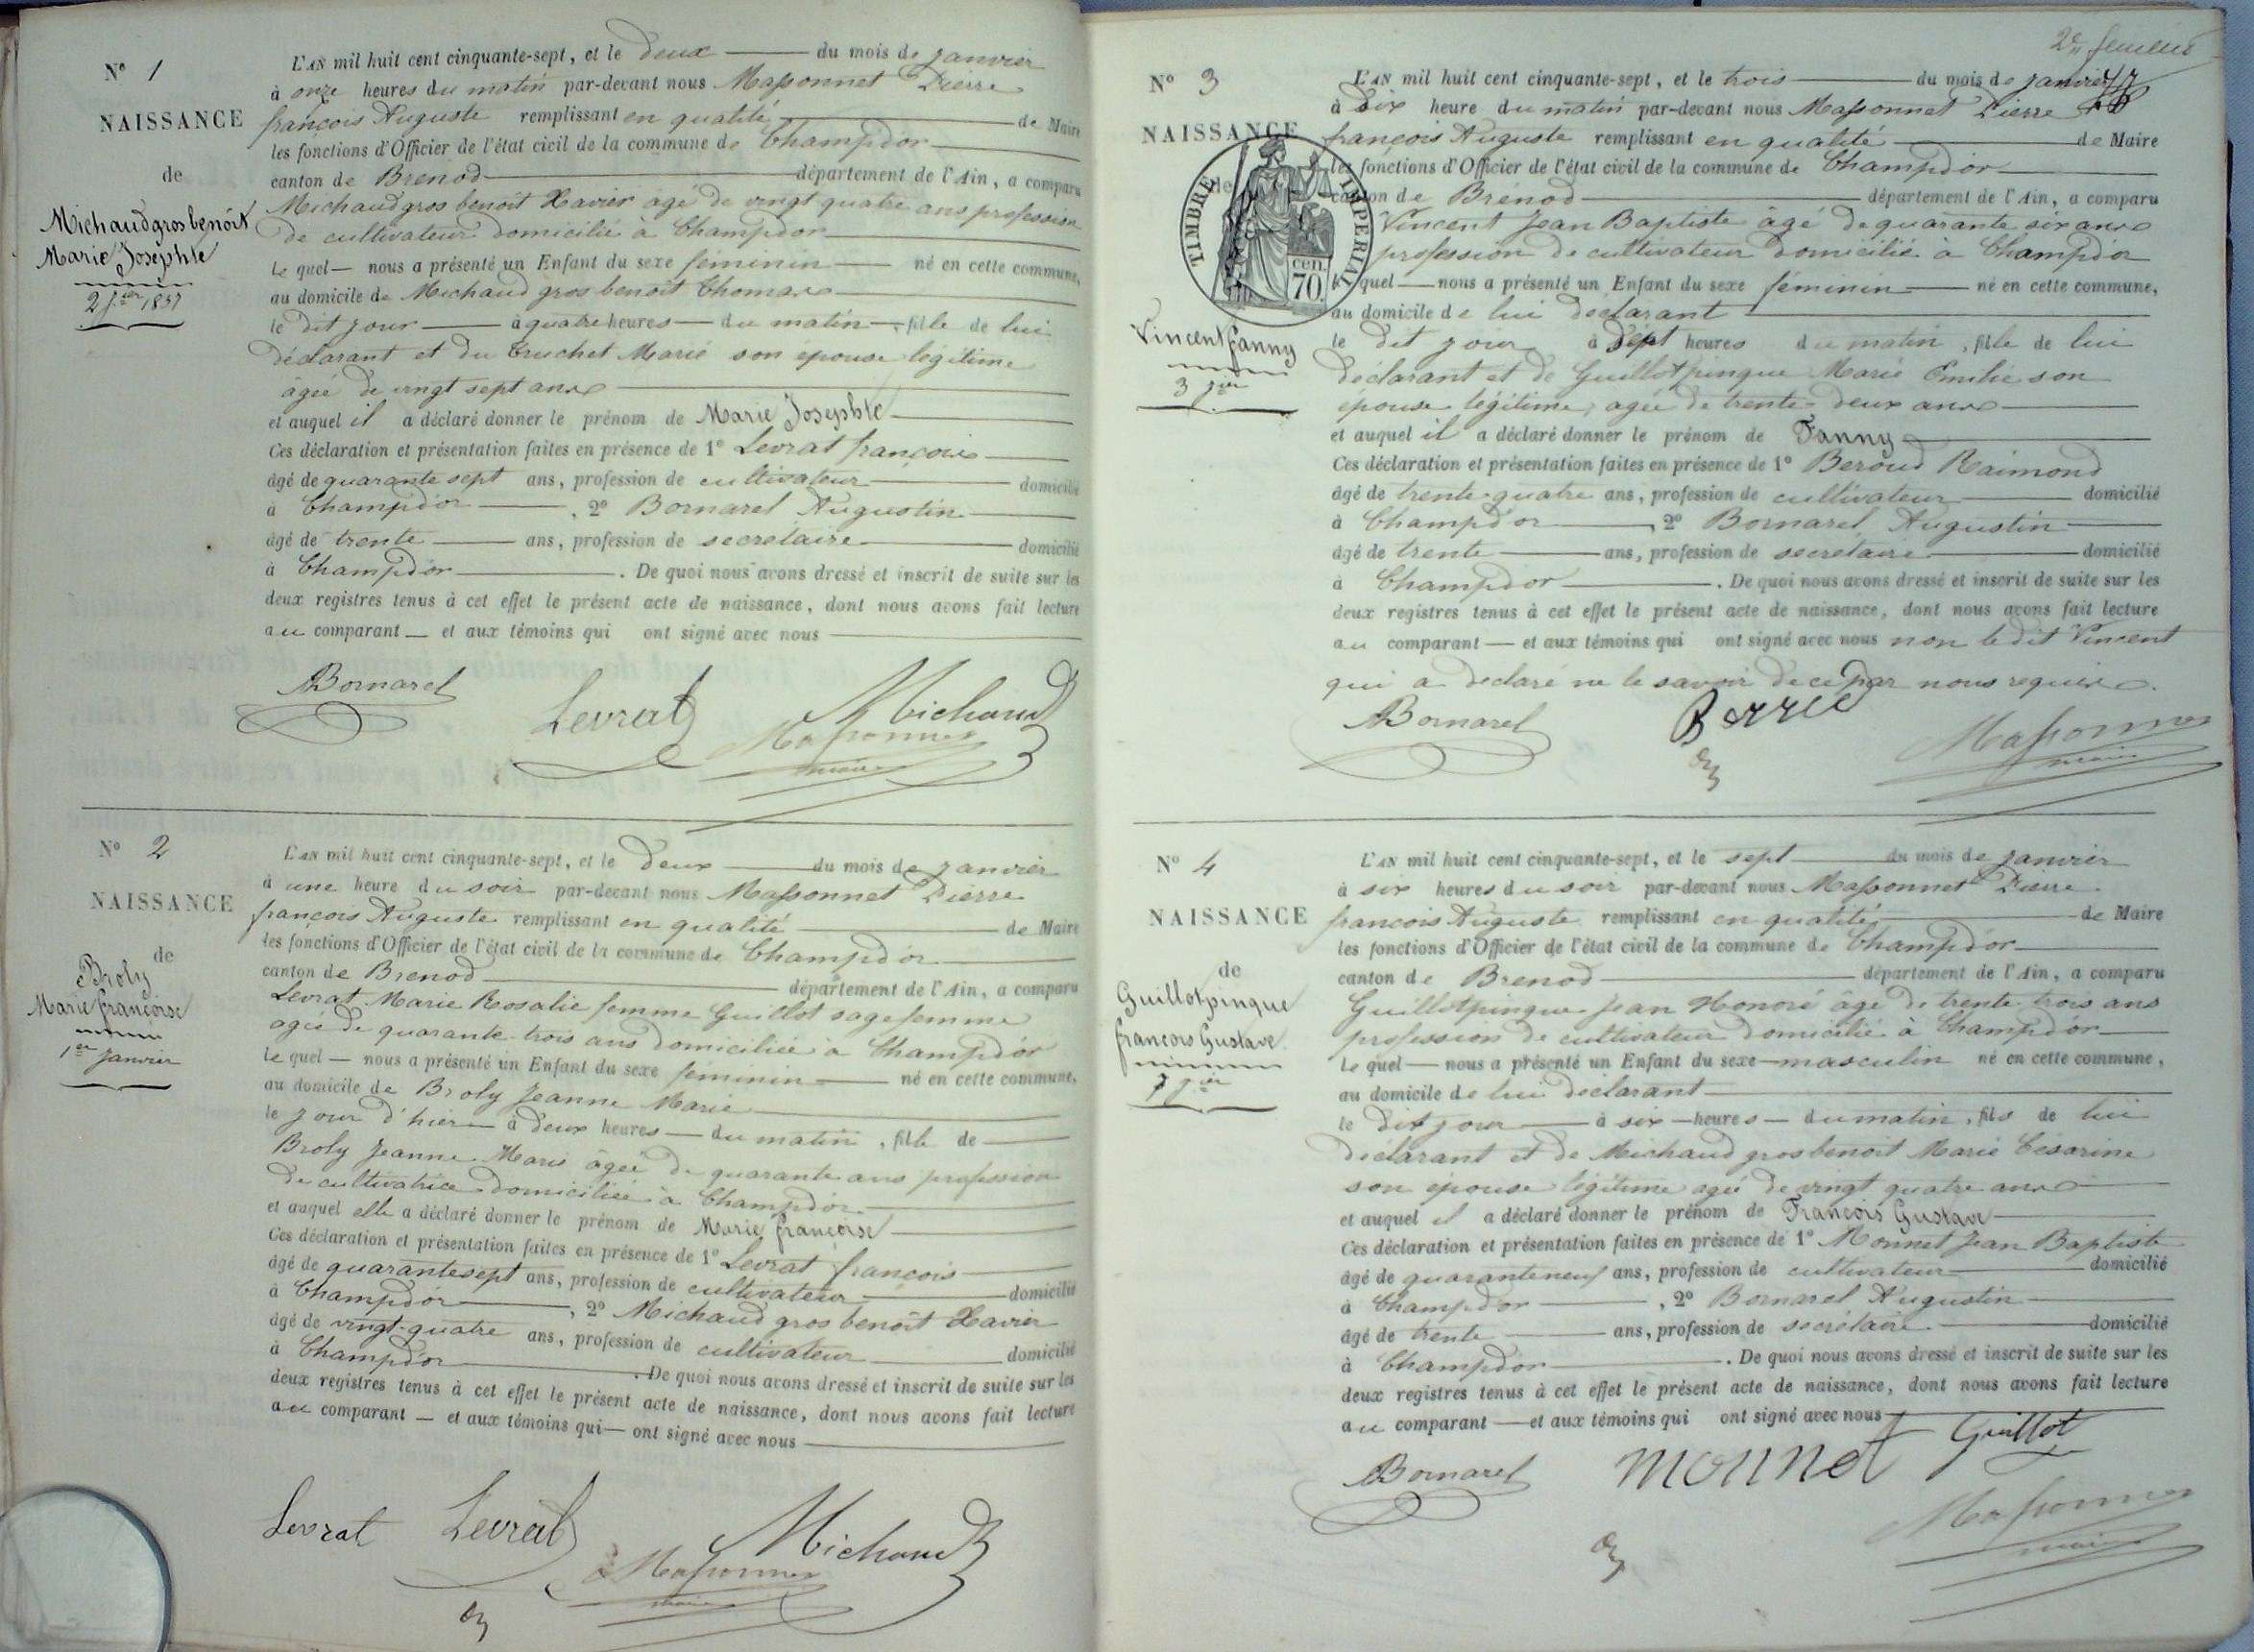 N° 1
NAISSANCE
de
Michaud gros benoît
Marie Josephte
2 jer 1857
L'AN mil huit cent cinquante-sept, et le deux du mois de janvier
à onze heures du matin par-devant nous Massonnet Pierre
françois Auguste remplissant en qualité de Maire
les fonctions d'Officier de l'état civil de la commune de Champdor
canton de Brenod département de l'Ain, a comparu
Michaud gros benoît Xavier âgé de vingt quatre ans profession
de cultivateur domicilié à Champdor
Le quel nous a présenté un Enfant du sexe féminin né en cette commune,
au domicile de Michaud gros benoît Thomas
le dit jour à quatre heures du matin, fille de lui
déclarant et du Truchet Marie son épouse légitime
âgée de vingt sept ans
et auquel il a déclaré donner le prénom de Marie Josephte
Ces déclaration et présentation faites en présence de 1° Levrat françois
âgé de quarante sept ans, profession de cultivateur domicilié
à Champdor, 2° Bornarel Augustin
âgé de trente ans, profession de secrétaire domicilié
à Champdor. De quoi nous avons dressé et inscrit de suite sur les
deux registres tenus à cet effet le présent acte de naissance, dont nous avons fait lecture
au comparant et aux témoins qui ont signé avec nous
ABornarel Levrat Michaud
Massonnet
maire
N° 2
NAISSANCE
de
Broly
Marie françoise
1er Janvier
L'AN mil huit cent cinquante-sept, et le deux du mois de janvier
à une heure du soir par-devant nous Massonnet Pierre
françois Auguste remplissant en qualité de Maire
les fonctions d'Officier de l'état civil de la commune de Champdor
canton de Brenod département de l'Ain, a comparu
Levrat Marie Rosalie femme Guillot sage femme
agée de quarante-trois ans domiciliée à Champdor
Le quel nous a présenté un Enfant du sexe féminin né en cette commune,
au domicile de Broly Jeanne Marie
le jour d'hier à deux heures du matin, fille de
Broly Jeanne Marie âgée de quarante ans profession
de cultivatrice domiciliée à Champdor
et auquel elle a déclaré donner le prénom de Marie françoise
Ces déclaration et présentation faites en présence de 1° Levrat françois
âgé de quarante sept ans, profession de cultivateur domicilié
à Champdor, 2° Michaud gros benoît Xavier
âgé de vingt-quatre ans, profession de cultivateur domicilié
à Champdor. De quoi nous avons dressé et inscrit de suite sur les
deux registres tenus à cet effet le présent acte de naissance, dont nous avons fait lecture
au comparant et aux témoins qui ont signé avec nous
Levrat Levrat Michaud
Massonnet
maire
2e feuillet
N° 3
NAISSANCE
de
TIMBRE IMPERIAL
70 cen.
Vincent fanny
3 jer
L'AN mil huit cent cinquante-sept, et le trois du mois de janvier
à Dix heure du matin par-devant nous Massonnet Pierre
françois Auguste remplissant en qualité de Maire
les fonctions d'Officier de l'état civil de la commune de Champdor
canton de Brénod département de l'Ain, a comparu
Vincent Jean Baptiste âgé de quarante six ans
profession de cultivateur domicilié à Champdor
Le quel nous a présenté un Enfant du sexe féminin né en cette commune,
au domicile de lui déclarant
le dit jour à Sept heures du matin, fille de lui
déclarant et de Guillotpinque Marie Emilie son
epouse légitime, agée de trente-deux ans
et auquel il a déclaré donner le prénom de Fanny
Ces déclaration et présentation faites en présence de 1° Beroud Raimond
âgé de trente-quatre ans, profession de cultivateur domicilié
à Champdor, 2° Bornarel Augustin
âgé de trente ans, profession de secretaire domicilié
à Champdor. De quoi nous avons dressé et inscrit de suite sur les
deux registres tenus à cet effet le présent acte de naissance, dont nous avons fait lecture
au comparant et aux témoins qui ont signé avec nous non le dit Vincent
qui a déclaré ne le savoir de ce par nous requis.
ABornarel
Massonnet
maire
N° 4
NAISSANCE
de
Guillotpinque
françois Gustave
7 jer
L'AN mil huit cent cinquante-sept, et le sept du mois de janvier
à six heures du soir par-devant nous Massonnet Pierre
francois Auguste remplissant en qualité de Maire
les fonctions d'Officier de l'état civil de la commune de Champdor
canton de Brenod département de l'Ain, a comparu
Guillotpinque Jean Honoré âgé de trente-trois ans
profession de cultivateur domicilié à Champdor
Le quel nous a présenté un Enfant du sexe masculin né en cette commune,
au domicile de lui déclarant
le dit jour à six heures du matin, fils de lui
déclarant et de Michaud gros benoit Marie Césarine
son épouse légitime agée de vingt quatre ans
et auquel il a déclaré donner le prénom de François Gustave
Ces déclaration et présentation faites en présence de 1° Monnet Jean Baptiste
âgé de quaranteneuf ans, profession de cultivateur domicilié
à Champdor, 2° Bornarel Augustin
âgé de trente ans, profession de secrétaire domicilié
à Champdor. De quoi nous avons dressé et inscrit de suite sur les
deux registres tenus à cet effet le présent acte de naissance, dont nous avons fait lecture
au comparant et aux témoins qui ont signé avec nous
ABornarel monnet Guillot
Massonnet
maire